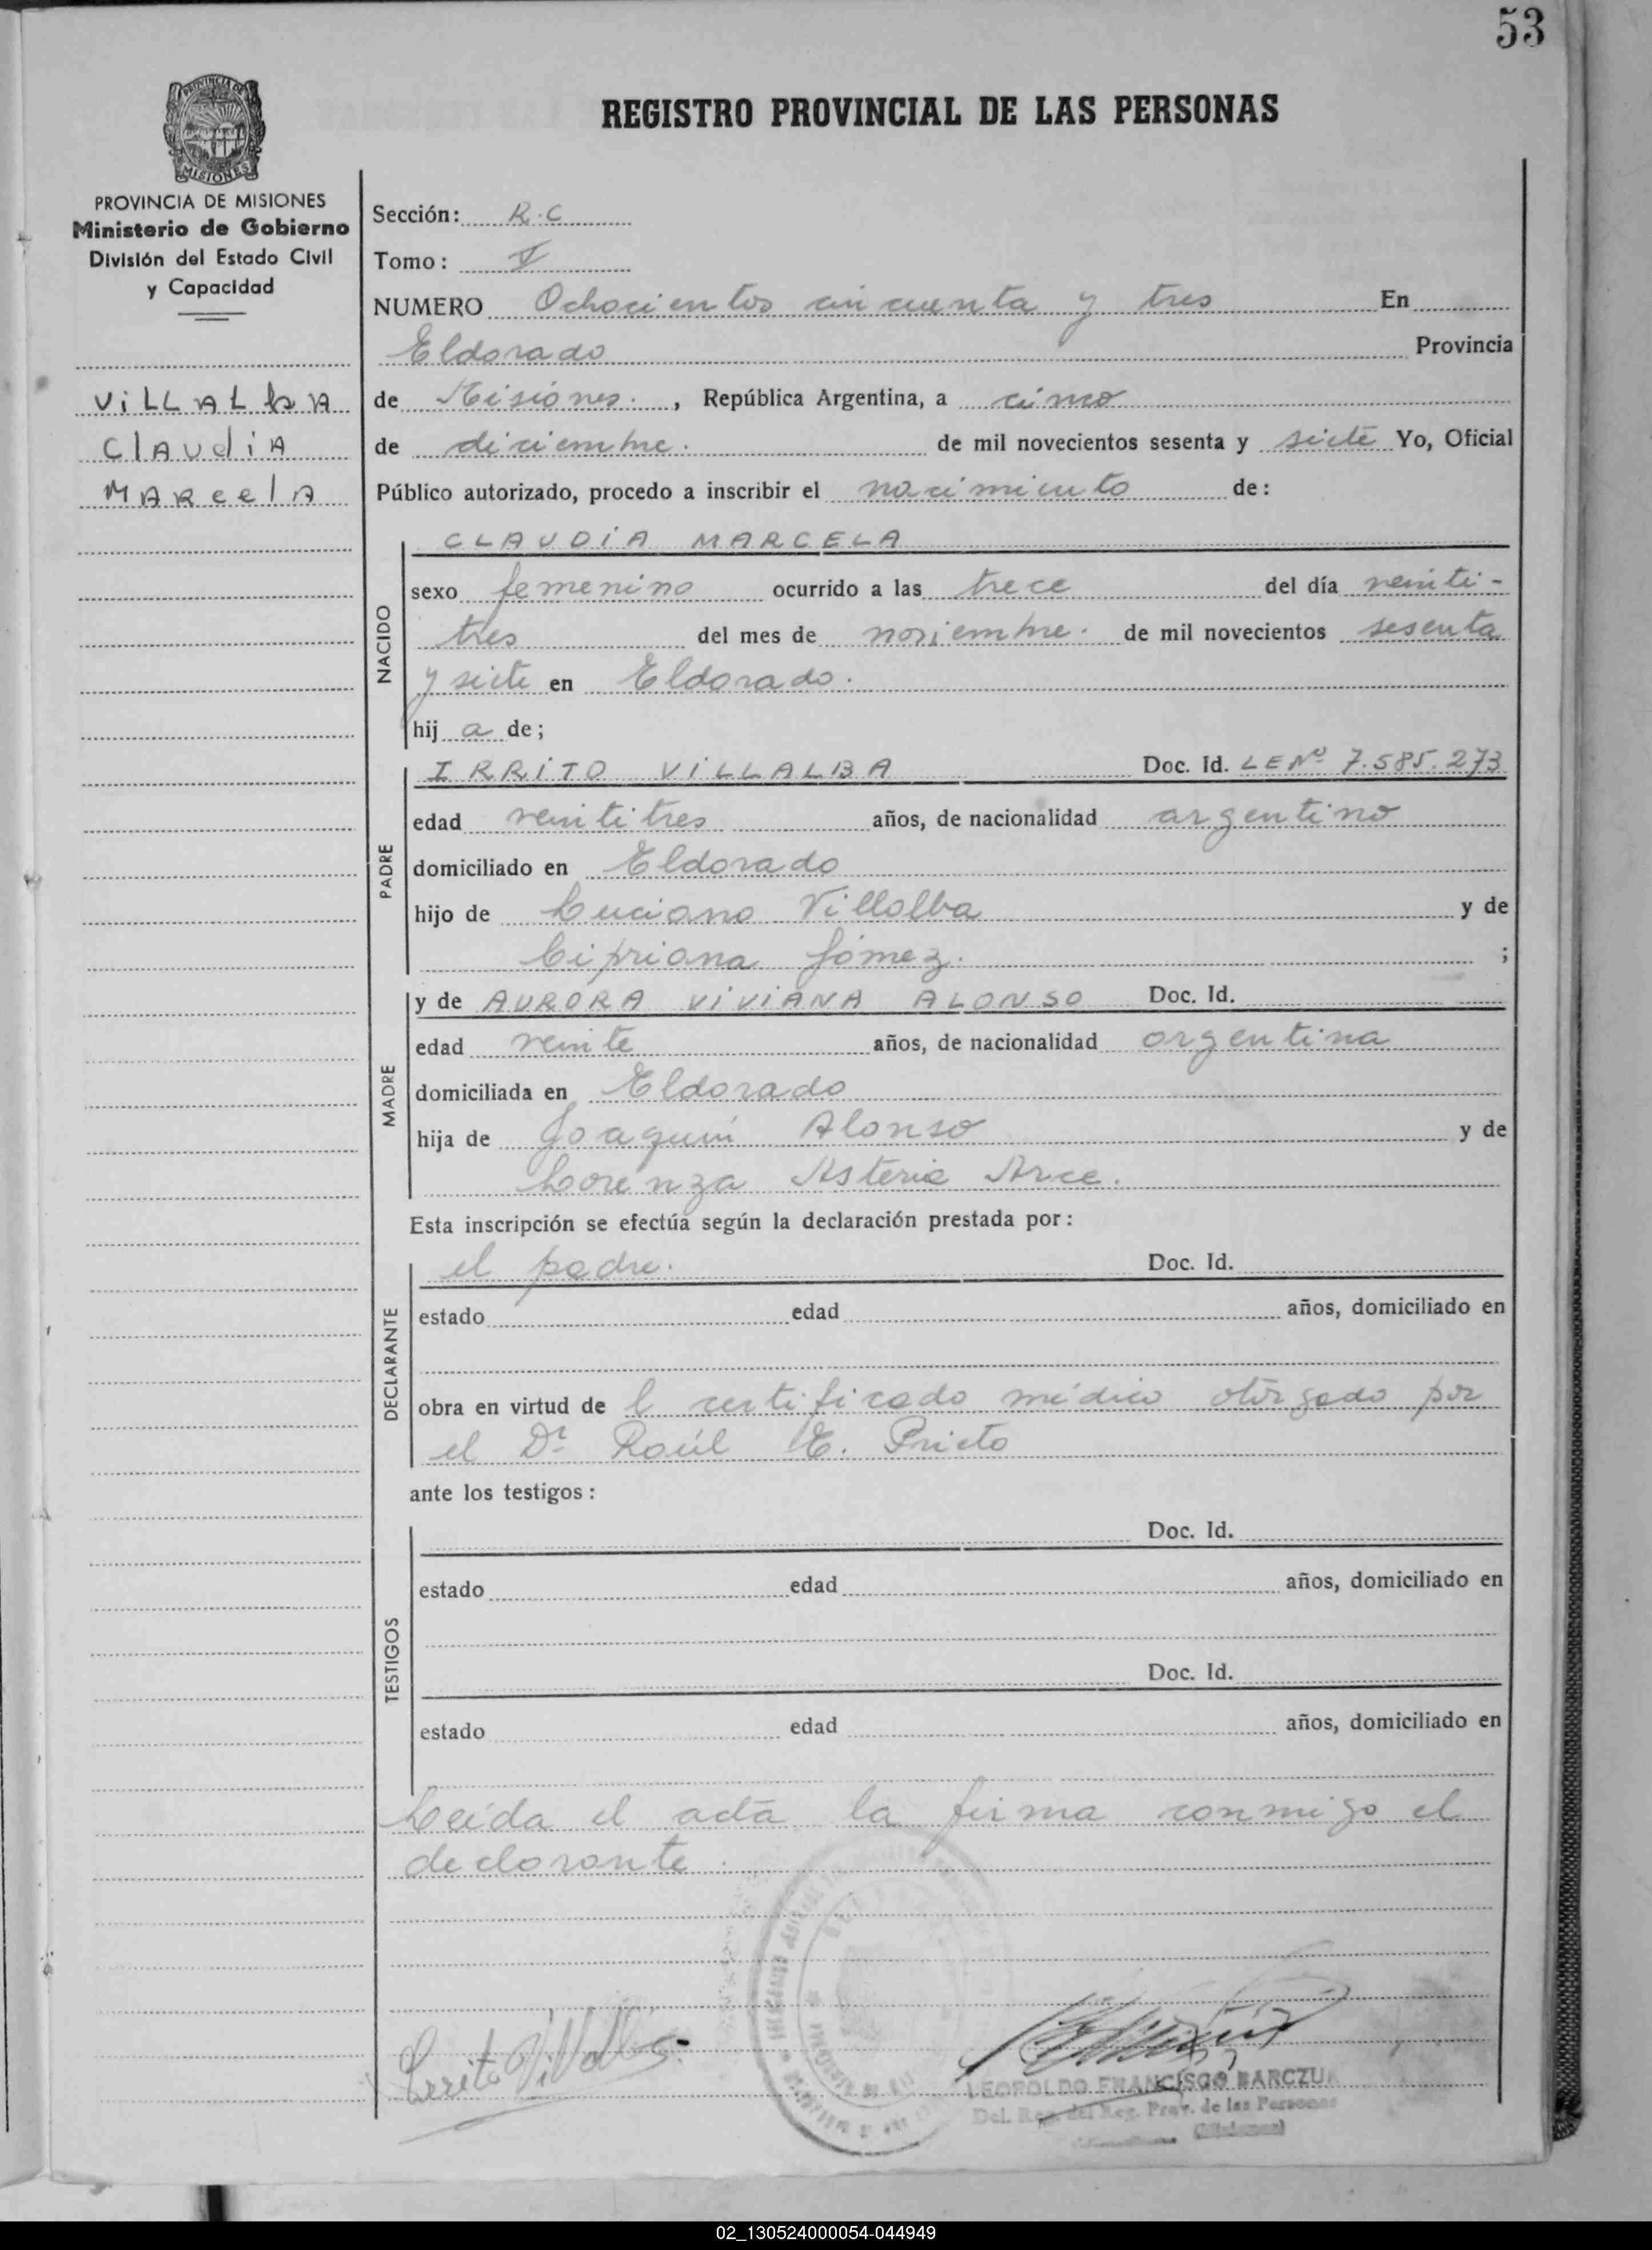 53
PROVINCIA DE
MISIONES
REGISTRO PROVINCIAL DE LAS PERSONAS
PROVINCIA DE MISIONES
Ministerio de Gobierno
División del Estado Civil
y Capacidad
ViLLALbA
ClAUdiA
MARcelA
Sección: R.C
Tomo: V
NUMERO Ochocientos cincuenta y tres En
Eldorado Provincia
de Misiones. , República Argentina, a cinco
de diciembre. de mil novecientos sesenta y siete Yo, Oficial
Público autorizado, procedo a inscribir el nacimiento de:
NACIDO
CLAUDiA MARCELA
sexo femenino ocurrido a las trece del día veinti-
tres del mes de noviembre. de mil novecientos sesenta
y siete en Eldorado.
hij a de;
PADRE
IRRiTO ViLLALBA Doc. Id. LE Nº 7.585.273
edad veintitres años, de nacionalidad argentino
domiciliado en Eldorado
hijo de Luciano Villalba y de
Cipriana Gómez. ;
MADRE
y de AURORA ViViANA ALONSO Doc. Id.
edad veinte años, de nacionalidad argentina
domiciliada en Eldorado
hija de Joaquín Alonso y de
Lorenza Asteria Arce.
Esta inscripción se efectúa según la declaración prestada por:
DECLARANTE
el padre. Doc. Id.
estado edad años, domiciliado en
obra en virtud de l certificado médico otorgado por
el Dr Raúl E. Prieto
ante los testigos:
TESTIGOS
Doc. Id.
estado edad años, domiciliado en
Doc. Id.
estado edad años, domiciliado en
Leída el acta la firma conmigo el
declarante.
Irrito Villalba
LEOPOLDO FRANCISCO BARCZUK
Del. Reg. del Reg. Prov. de las Personas
02_130524000054-044949